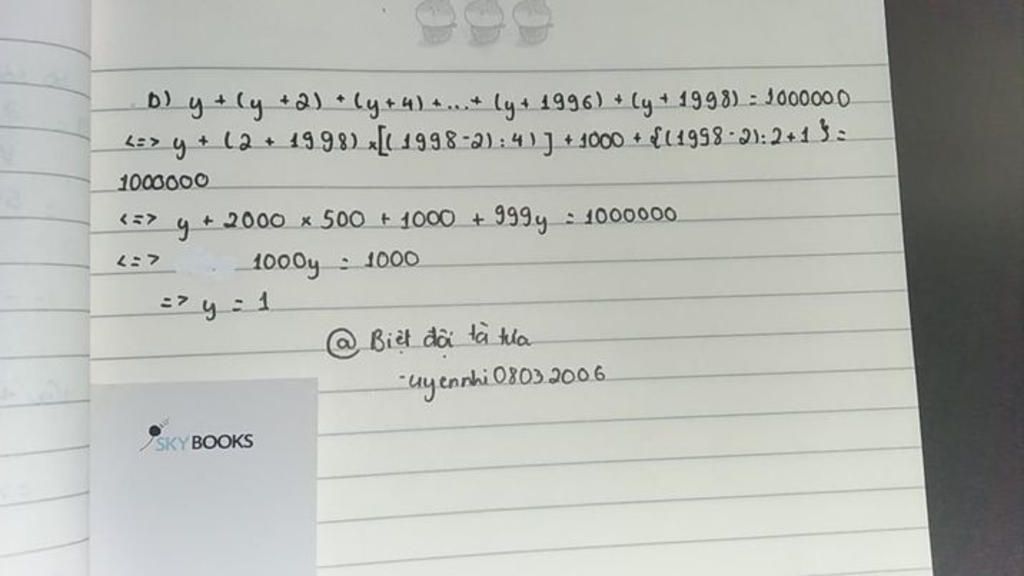 b) y + (y + 2) + (y + 4) + ... + (y + 1996) + (y + 1998) = 1000000
<=> y + (2 + 1998) x [(1998 - 2) : 4)] + 1000 + {(1998 - 2) : 2 + 1} =
1000000
<=> y + 2000 x 500 + 1000 + 999y = 1000000
<=> 1000y = 1000
=> y = 1
@ Biệt đội tà tưa
-uyennhi08032006
SKYBOOKS